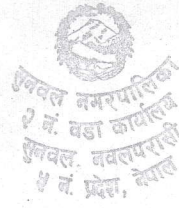 सुनवल नगरपालिका
२ नं. वडा कार्यालय
सुनवल नवलपरासी
५ नं. प्रदेश, नेपाल